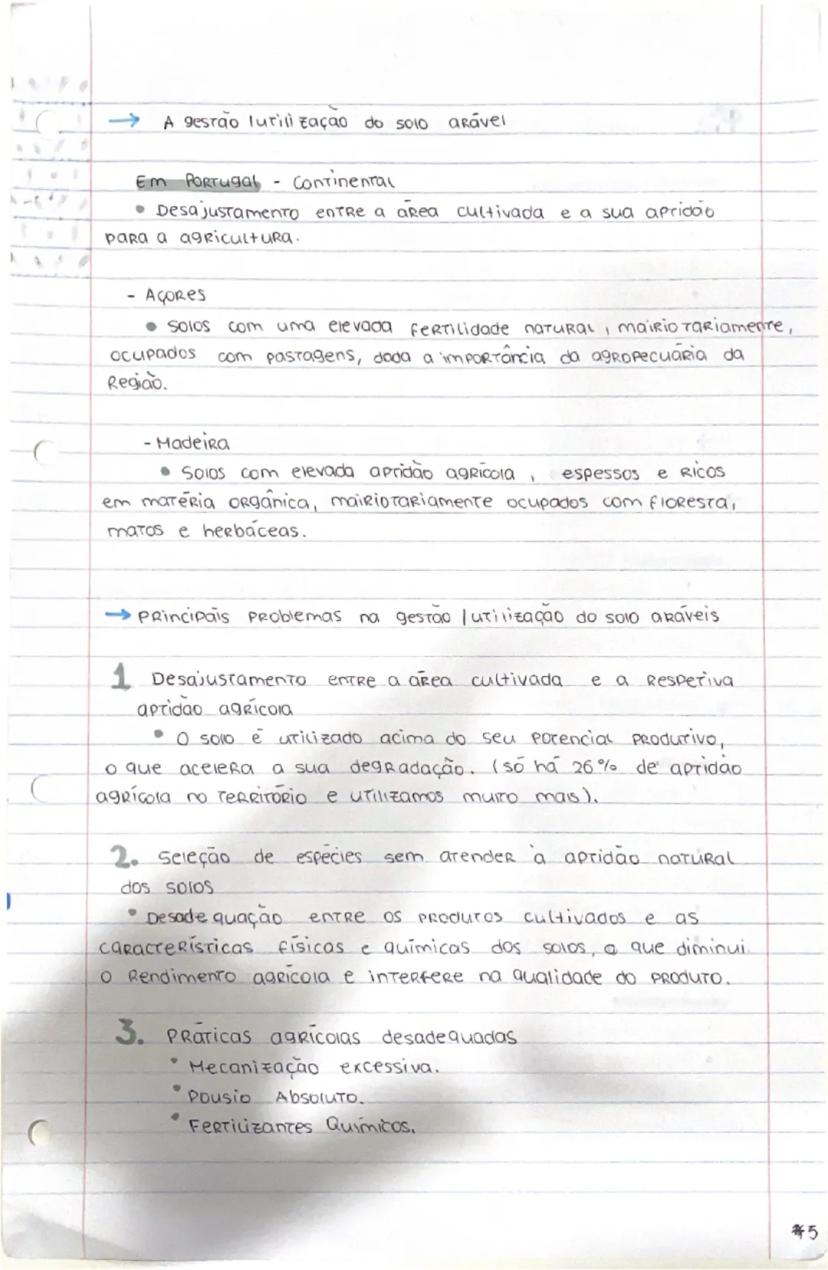 → A gestão / utilização do solo arável
Em Portugal - Continental
• Desajustamento entre a área cultivada e a sua aptidão
para a agricultura.
- Açores
• Solos com uma elevada fertilidade natural, mairiotariamente,
ocupados com pastagens, dada a importância da agropecuária da
Região.
- Madeira
• Solos com elevada aptidão agrícola, espessos e ricos
em matéria orgânica, mairiotariamente ocupados com floresta,
matos e herbáceas.
→ Principais problemas na gestão / utilização do solo aráveis
1 Desajustamento entre a área cultivada e a respetiva
aptidão agrícola
• O solo é utilizado acima do seu potencial produtivo,
o que acelera a sua degradação. (só há 26% de aptidão
agrícola no território e utilizamos muito mais).
2. Seleção de espécies sem atender à aptidão natural
dos solos
• Desadequação entre os produtos cultivados e as
características físicas e químicas dos solos, o que diminui
o rendimento agrícola e interfere na qualidade do produto.
3. Práticas agrícolas desadequadas
• Mecanização excessiva.
• Pousio Absoluto.
• Fertilizantes Químicos.
#5